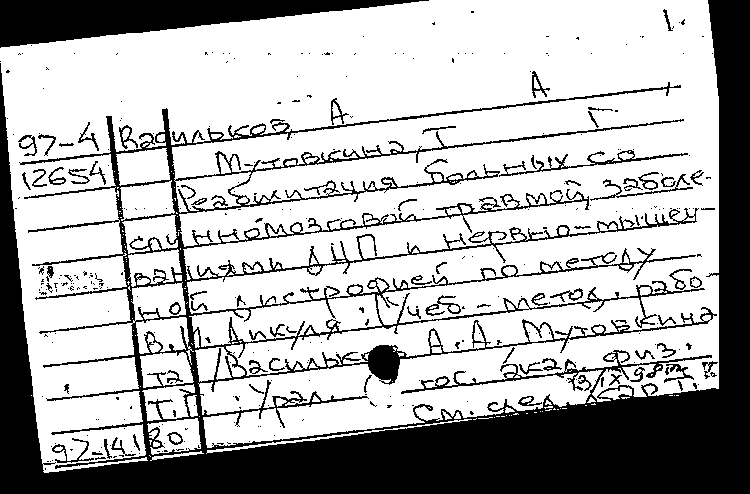 1.
97-4 Васильков, А А
12654 Мутовкина, Т Г
Реабилитация больных со
спинномозговой травмой, заболе-
ваниями ДЦП и нервно-мышеч
ной дистрофией по методу
В.И. Дикуля : (Учеб.-метод. рабо-
та /Васильков А.А. Мутовкина
Т.Г. ; Урал. гос. акад. физ.
См. след.
97-14180